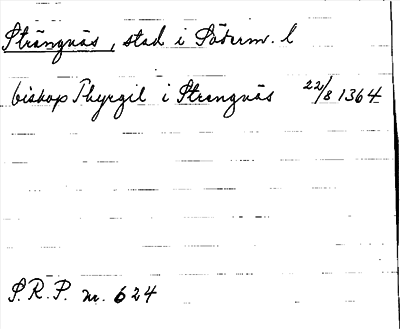 Strängnäs, stad i Söderm. l
biskop Thyrgil i Strengnäs 22/8 1364
S.R.P. nr. 624